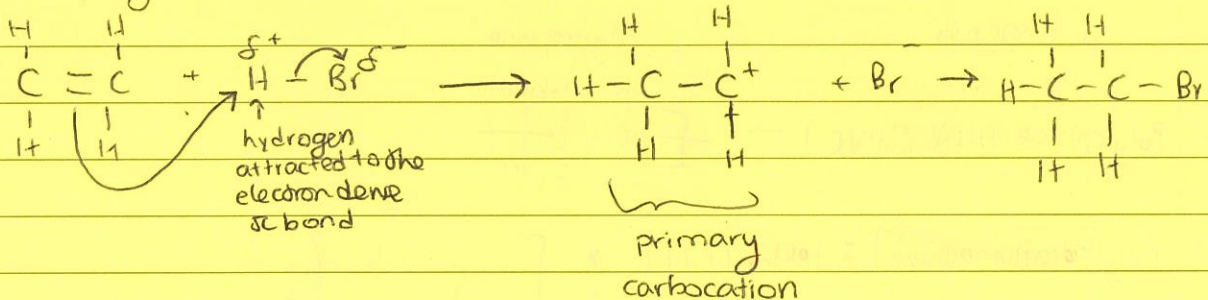 H H H H H H
δ+ δ−
C = C + H − Br ⟶ H − C − C+ + Br− → H − C − C − Br
H H H H H H
↑
hydrogen
attracted to the
electron dense
π bond
primary
carbocation